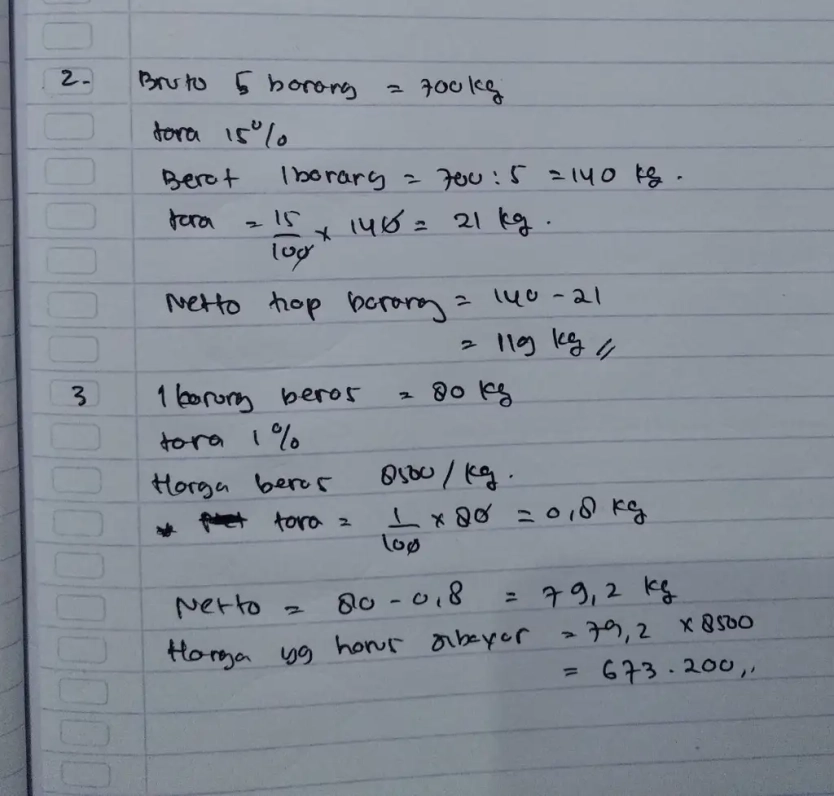 2. Bruto 5 karung = 700 kg
tara 15%
Berat 1 karung = 700 : 5 = 140 kg.
tara = 15/100 x 140 = 21 kg.
Netto tiap karung = 140 - 21
= 119 kg //
3 1 karung beras = 80 kg
tara 1%
Harga beras 8500/kg.
* tara = 1/100 x 80 = 0,8 kg
Netto = 80 - 0,8 = 79,2 kg
Harga yg harus dibayar = 79,2 x 8500
= 673.200,,